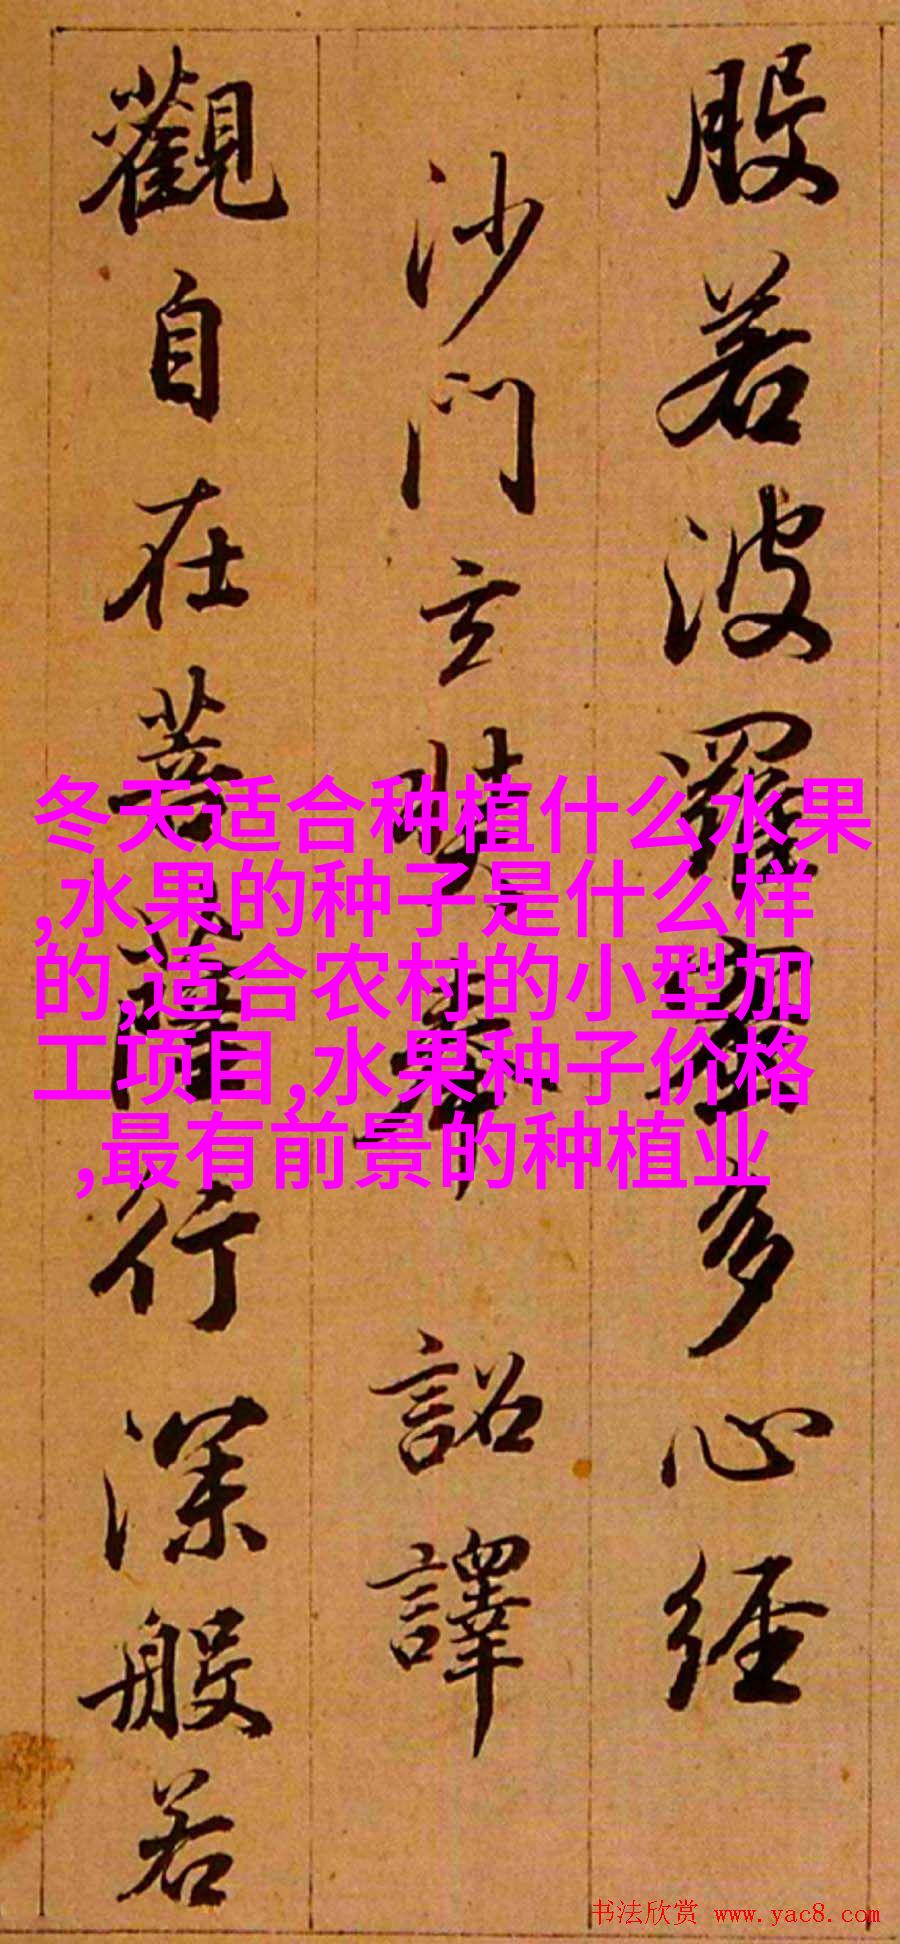 般若波羅蜜多心經
沙門玄奘奉 詔譯
觀自在菩薩行深般若
冬天适合种植什么水果
,水果的种子是什么样
的,适合农村的小型加
工项目,水果种子价格
,最有前景的种植业
书法欣赏 www.yac8.com